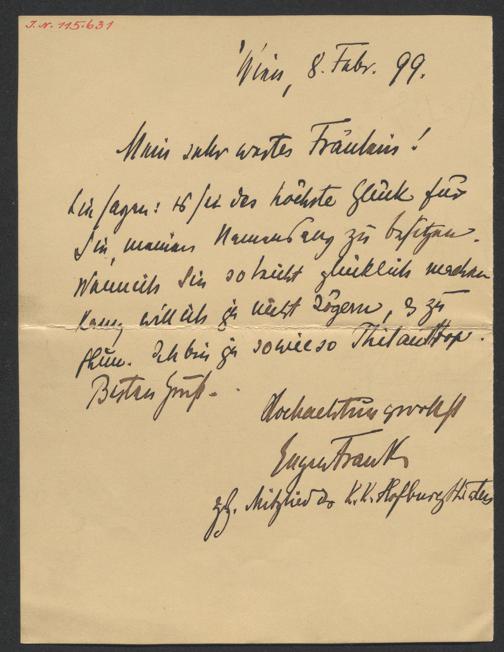 J.N. 115.631
Wien, 8. Febr. 99.
Mein sehr wertes Fräulein!
Sie sagen: es sei das höchste Glück für
Sie, meinen Namenszug zu besitzen.
Wenn ich Sie so leicht glücklich machen
kann, will ich ja nicht zögern, es zu
thun. Ich bin ja sowieso Philanthrop.
Besten Gruß.
Hochachtungsvollst
Eugen Frank
Mitglied des K.K. Hofburgtheaters